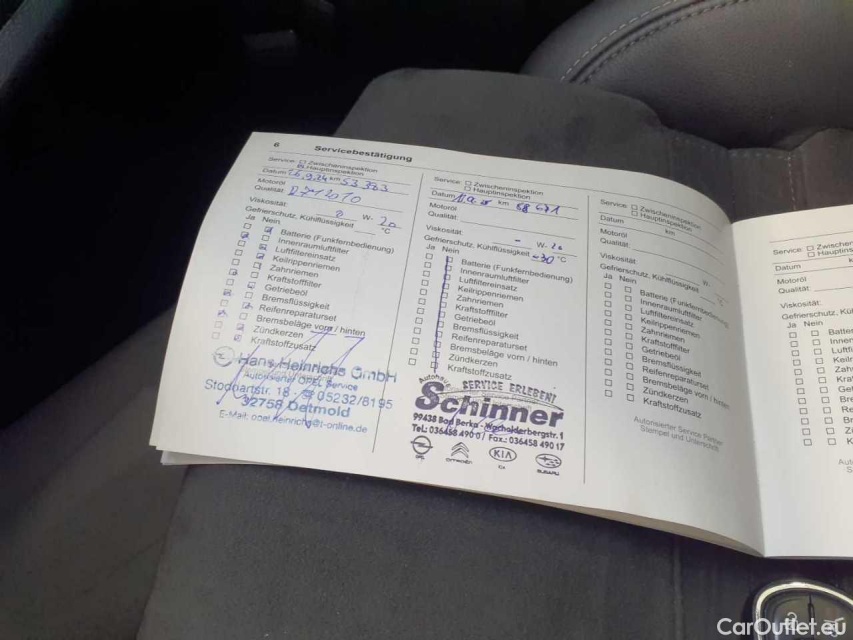 6 Servicebestätigung
Service: Zwischeninspektion
Hauptinspektion
Datum 26.9.24 km 53 323
Motoröl
Qualität
Viskosität: 0 W- 20
Gefrierschutz, Kühlflüssigkeit °C
Ja Nein
Batterie (Funkfernbedienung)
Innenraumluftfilter
Luftfiltereinsatz
Keilrippenriemen
Zahnriemen
Kraftstofffilter
Getriebeöl
Bremsflüssigkeit
Reifenreparaturset
Bremsbeläge vorn / hinten
Zündkerzen
Kraftstoffzusatz
Hans Heinrichs GmbH
Autorisierter OPEL Service
Stoddartstr. 18 05232/8195
32758 Detmold
E-Mail: opel.heinrichs@t-online.de
Service: Zwischeninspektion
Hauptinspektion
Datum km
Motoröl
Qualität:
Viskosität: - W- 20
Gefrierschutz, Kühlflüssigkeit -30 °C
Ja Nein
Batterie (Funkfernbedienung)
Innenraumluftfilter
Luftfiltereinsatz
Keilrippenriemen
Zahnriemen
Kraftstofffilter
Getriebeöl
Bremsflüssigkeit
Reifenreparaturset
Bremsbeläge vorn / hinten
Zündkerzen
Kraftstoffzusatz
Autohaus SERVICE ERLEBEN!
Schinner
99438 Bad Berka - Wacholderbergstr. 1
Tel.: 036458 490 0 / Fax.: 036458 490 17
OPEL CITROËN KIA Kia SUBARU
Service: Zwischeninspektion
Hauptinspektion
Datum km
Motoröl
Qualität:
Viskosität: W-
Gefrierschutz, Kühlflüssigkeit °C
Ja Nein
Batterie (Funkfernbedienung)
Innenraumluftfilter
Luftfiltereinsatz
Keilrippenriemen
Zahnriemen
Kraftstofffilter
Getriebeöl
Bremsflüssigkeit
Reifenreparaturset
Bremsbeläge vorn / hinten
Zündkerzen
Kraftstoffzusatz
Autorisierter Service Partner
Stempel und Unterschrift
Service: Zwischen
Hauptinsp
Datum
Motoröl
Qualität:
Viskosität:
Gefrierschutz, Kühlf
Ja Nein
Batter
Innen
Luftfi
Keil
Zah
Kra
Get
Bre
Re
Br
Zü
K
CarOutlet.eu